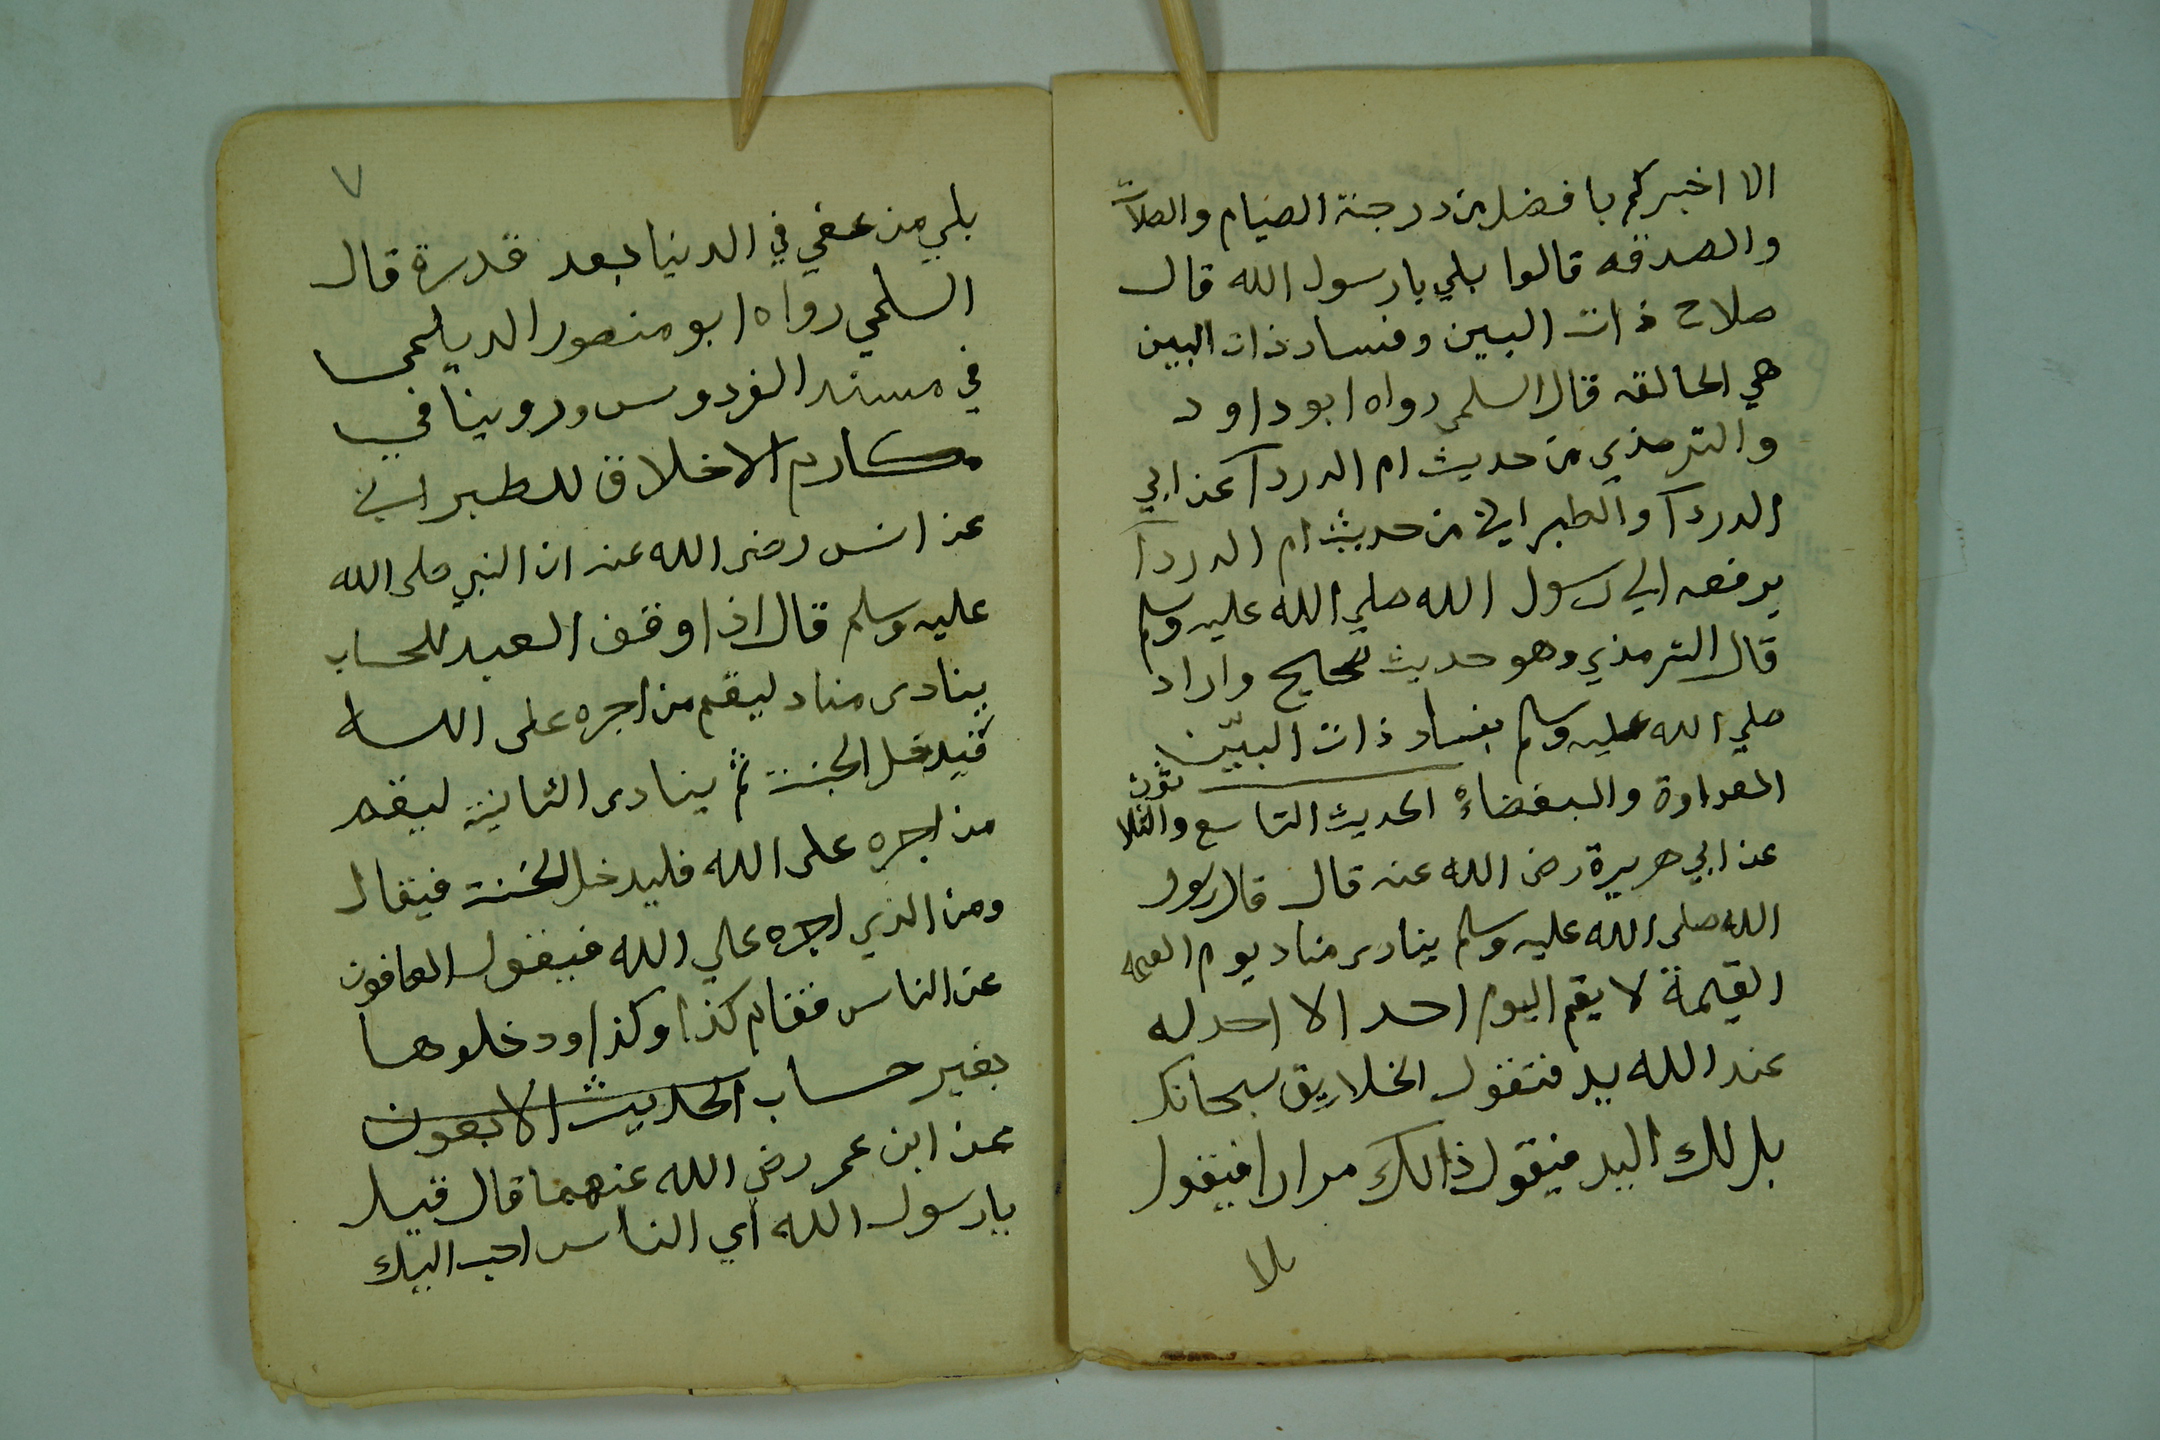 الا اخبركم بافضل من درجة الصيام والصلاة
والصدقه قالوا بلي يا رسول الله قال
صلاح ذات البين وفساد ذات البين
هي الحالقه قال السلمي رواه ابو داود
والترمذي من حديث ام الدردآ عن ابي
الدردآ والطبراني من حديث ام الدردآ
يرفعه الي رسول الله صلي الله عليه وسلم
قال الترمذي وهو حديث صحيح واراد
صلي الله عليه وسلم بفساد ذات البيّن
العداوة والبغضاء الحديث التاسع والثلا
ثون
عن ابي هريرة رضى الله عنه قال قال رسول
الله صلى الله عليه وسلم ينادى مناد يوم القيمه
القيمة لا يقم اليوم احد الا احد له
عند الله يد فتقول الخلايق سبحانك
بل لك اليد فيقول ذالك مرارا فيقول
بلا
٧
بلي من عفي في الدنيا بعد قدرة قال
السلمي رواه ابو منصور الديلمي
في مسند الفردوس وروينا في
مكارم الاخلاق للطبراني
عن انس رضى الله عنه ان النبي صلى الله
عليه وسلم قال اذا وقف العبد للحساب
ينادى مناد ليقم من اجره على الله
فيدخل الجنة ثم ينادى الثانية ليقم
من اجره على الله فليدخل الجنة فيقال
ومن الذي اجره علي الله فيقول العافون
عن الناس فقام كذا وكذا ودخلوها
بغير حساب الحديث الاربعون
عن ابن عمر رضي الله عنهما قال قيل
يا رسول الله اي الناس احب اليك